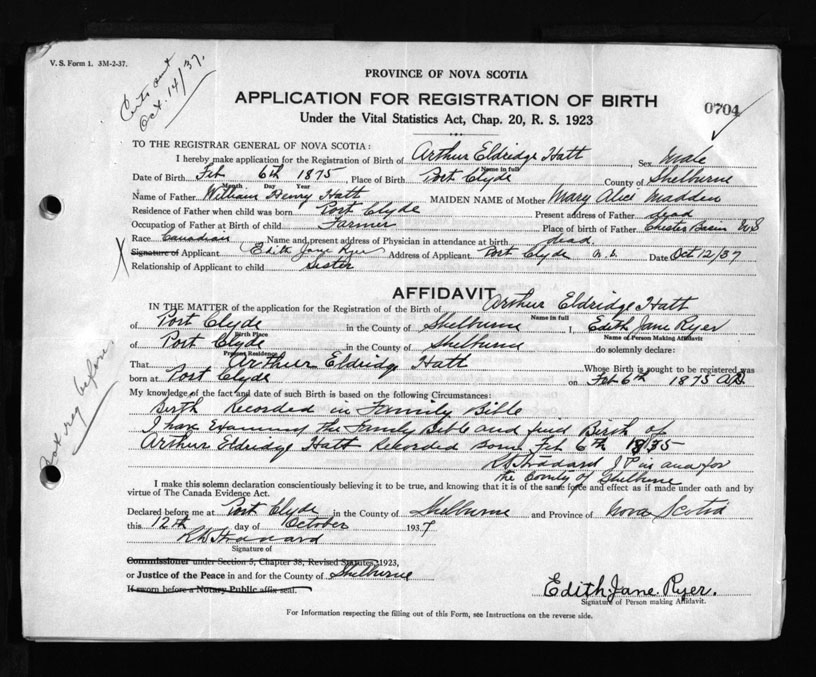 V. S. Form 1. 3M-2-37.
Certs sent
Oct. 14/37.
PROVINCE OF NOVA SCOTIA
APPLICATION FOR REGISTRATION OF BIRTH
0704
Under the Vital Statistics Act, Chap. 20, R. S. 1923
TO THE REGISTRAR GENERAL OF NOVA SCOTIA:
I hereby make application for the Registration of Birth of Arthur Eldridge Hatt, Sex Male
Name in full
Date of Birth Feb 6th 1875, Place of Birth Port Clyde County of Shelburne
Month Day Year
Name of Father William Henry Hatt MAIDEN NAME of Mother Mary Alice Madden
Residence of Father when child was born Port Clyde Present address of Father dead
Occupation of Father at Birth of child Farmer Place of birth of Father Chester Basin N S
Race Canadian Name and present address of Physician in attendance at birth dead
Signature of Applicant Edith Jane Ryer Address of Applicant Port Clyde N.S. Date Oct 12/37
Relationship of Applicant to child Sister
AFFIDAVIT
IN THE MATTER of the application for the Registration of the Birth of Arthur Eldridge Hatt
Name in full
of Port Clyde in the County of Shelburne I, Edith Jane Ryer
Birth Place Name of Person Making Affidavit
of Port Clyde in the County of Shelburne do solemnly declare:
Present Residence
That Arthur Eldridge Hatt Whose Birth is sought to be registered was
born at Port Clyde on Feb 6th 1875 A.D.
My knowledge of the fact and date of such Birth is based on the following Circumstances:
Birth Recorded in Family Bible
I have Examined the Family Bible and find Birth of
Arthur Eldridge Hatt Recorded Feb 6th 1875
J P in and for
the County of Shelburne
I make this solemn declaration conscientiously believing it to be true, and knowing that it is of the same force and effect as if made under oath and by
virtue of The Canada Evidence Act.
Declared before me at Port Clyde in the County of Shelburne and Province of Nova Scotia
this 12th day of October 1937
Signature of
Commissioner under Section 5, Chapter 38, Revised Statutes, 1923,
or Justice of the Peace in and for the County of Shelburne
If sworn before a Notary Public affix seal.
Edith Jane Ryer.
Signature of Person making Affidavit.
For Information respecting the filling out of this Form, see Instructions on the reverse side.
Not reg before.